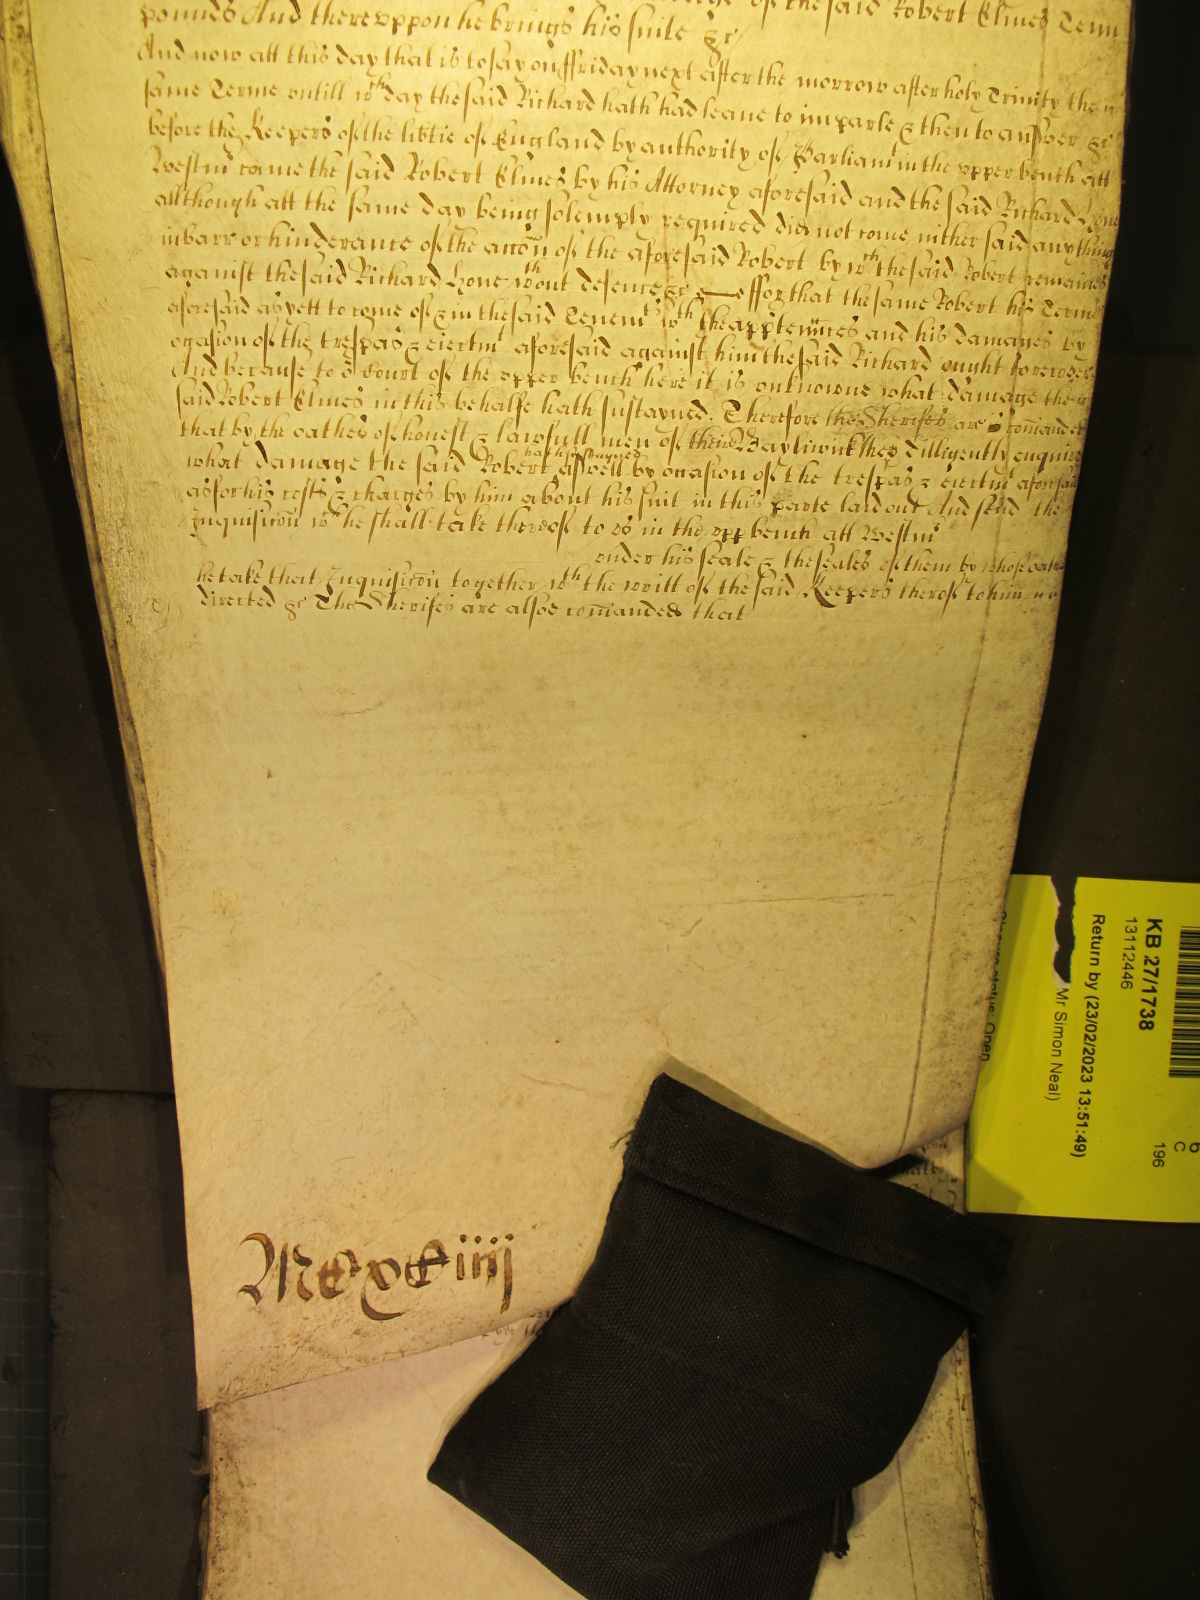 of the said Robert Elmes Tenn
pounds And thereuppon he brings his suite &c/
And now att this day that is to say on ffriday next after the morrow after holy Trinity the
same Terme untill wch day the said Richard hath had leave to imparle & then to answer &c
before the Keepers of the libtie of England by authority of Parliamt in the upper bench att
Westmr came the said Robert Elmes by his Attorney aforesaid and the said Richard Hone
allthough att the same day being solemply required did not come nither said any thing
in barr or hinderance of the accon of the aforesaid Robert by wch the said Robert remaines
against the said Richard Hone wthout defence &c — ffor that the same Robert his Terme
aforesaid as yett to come of & in the said Tenemts wth the apptennces and his damages by
occasion of the trespas & eiectmt aforesaid against him the said Richard ought to recover
And because to ye Court of the upper bench here it is unknowne what damage the
said Robert Elmes in this behalfe hath sustayned. Therefore the Sherifes are comanded
that by the oathes of honest & lawfull men of their Bayliwick they dilligently enquire
what damage the said Robert hath sustayned aswell by occasion of the trespas & eiectmt aforesaid
as for his costs & charges by him about his suit in this parte laid out And send the
Inquisicon wch he shall take thereof to us in the upp bench att Westmr
under his seale & the seales of them by whose oathe
he take that Inquisicon together wth the writt of the said Keepers therof to him
directed &c The Sherifes are alsoe comanded that
MCxCiiij
KB 27/1738
13112446
Return by (23/02/2023 13:51:49)
Mr Simon Neal)
Closure status: Open
196
C
6